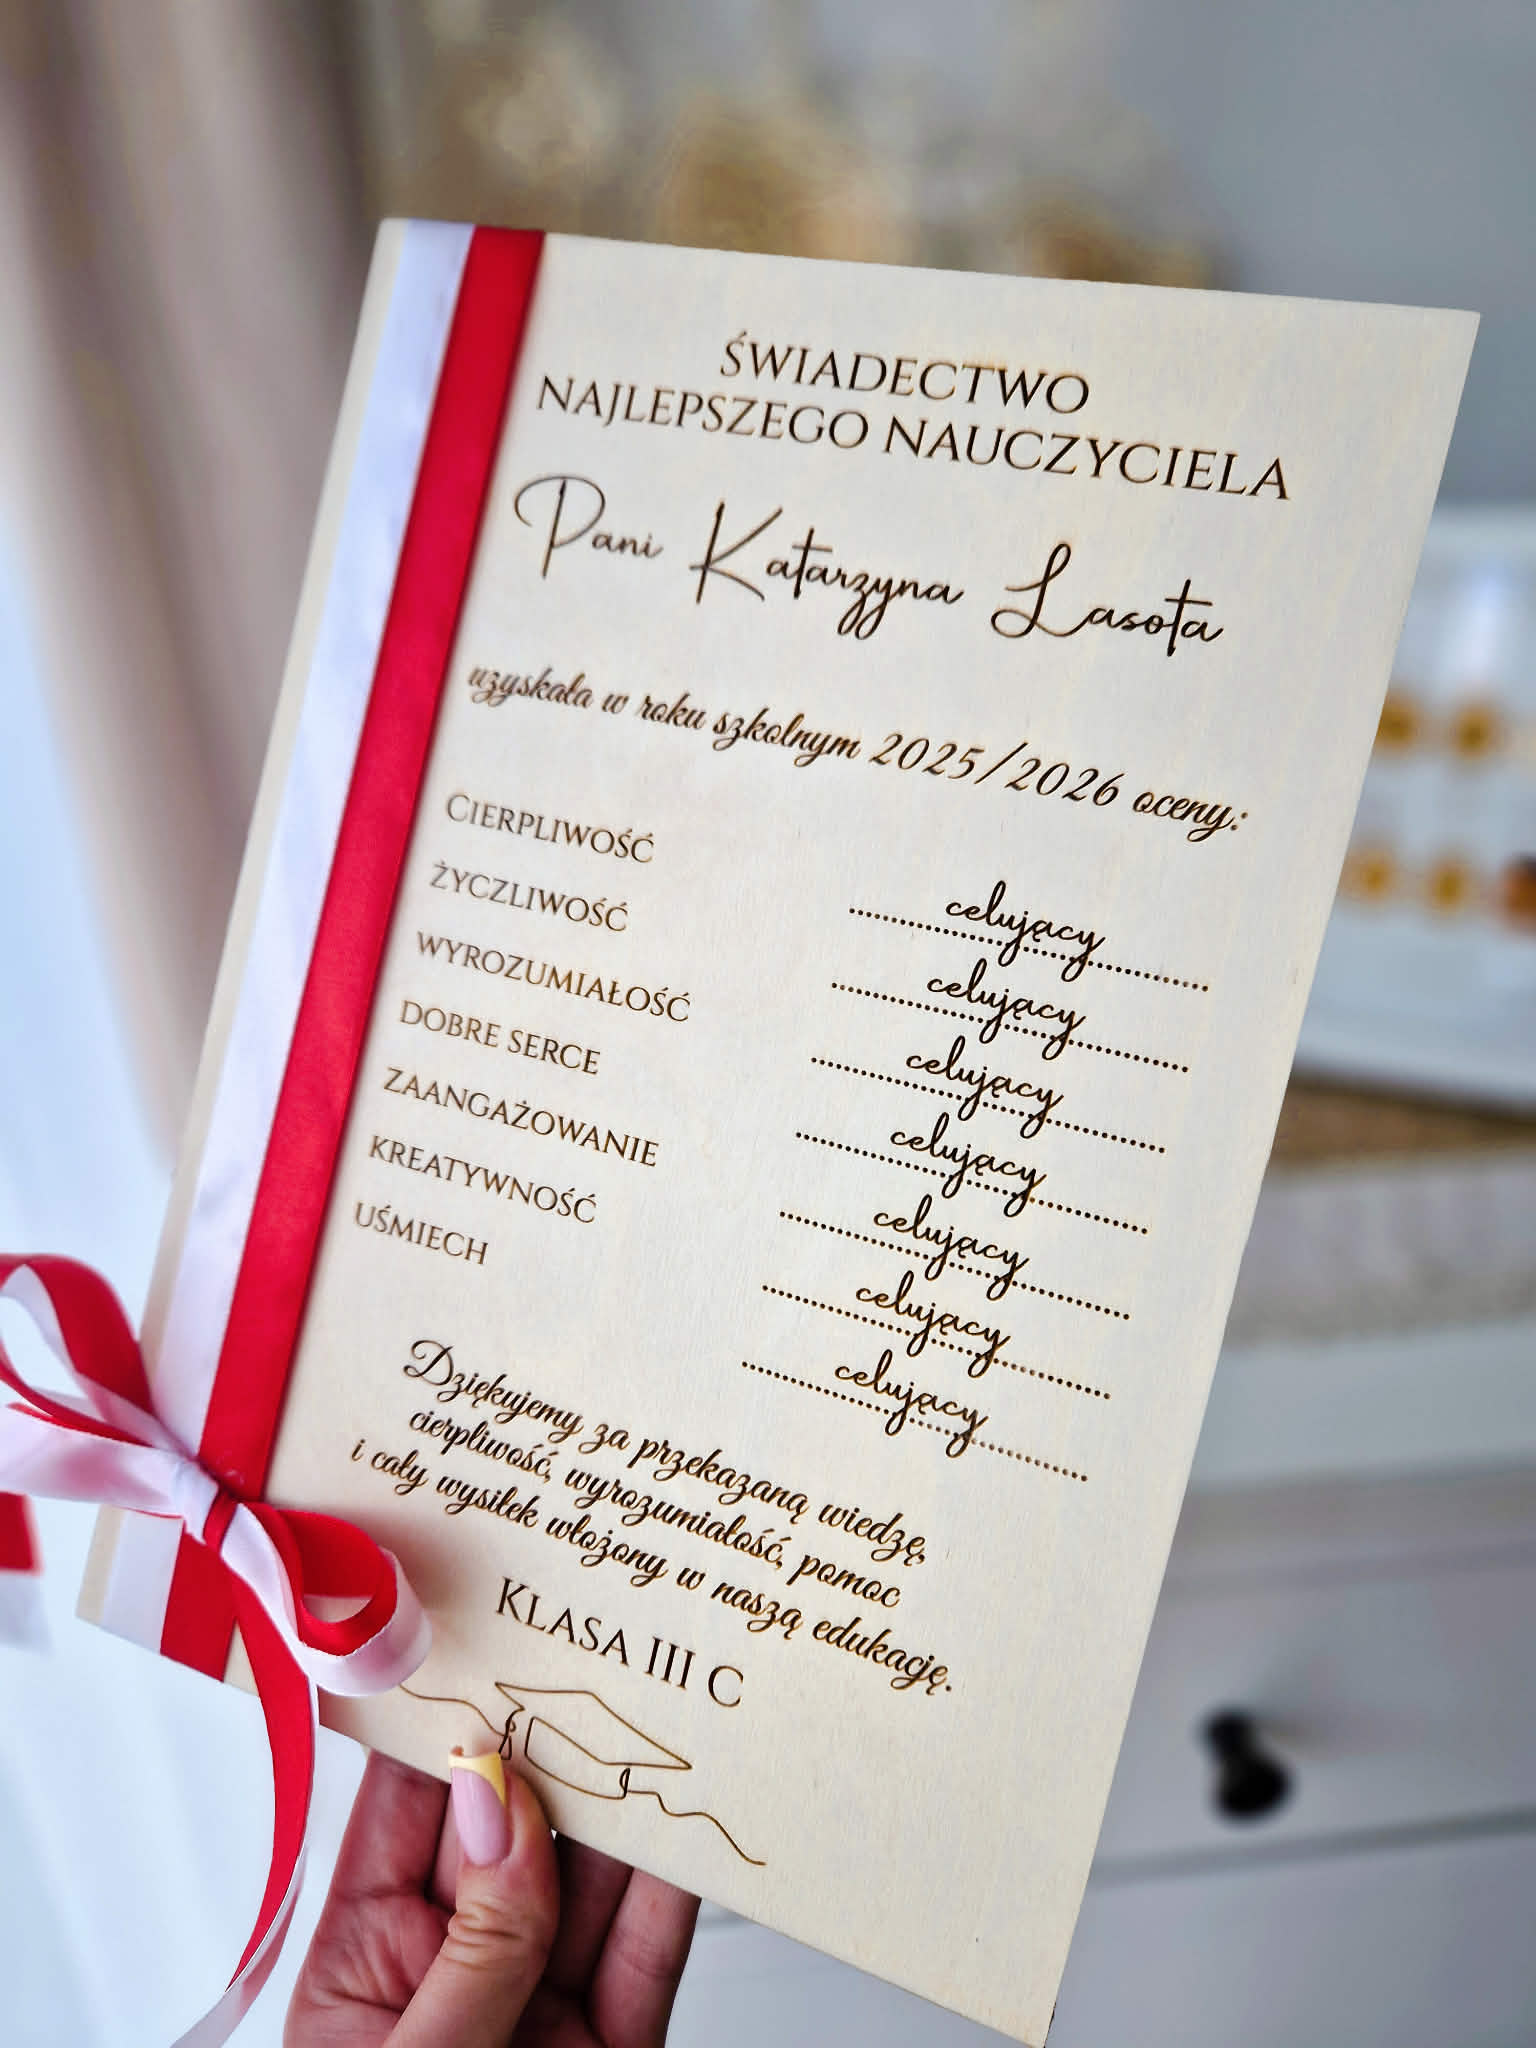 ŚWIADECTWO
NAJLEPSZEGO NAUCZYCIELA
Pani Katarzyna Lasota
uzyskała w roku szkolnym 2025/2026 oceny:
CIERPLIWOŚĆ celujący
ŻYCZLIWOŚĆ celujący
WYROZUMIAŁOŚĆ celujący
DOBRE SERCE celujący
ZAANGAŻOWANIE celujący
KREATYWNOŚĆ celujący
UŚMIECH celujący
Dziękujemy za przekazaną wiedzę,
cierpliwość, wyrozumiałość, pomoc
i cały wysiłek włożony w naszą edukację.
KLASA III C